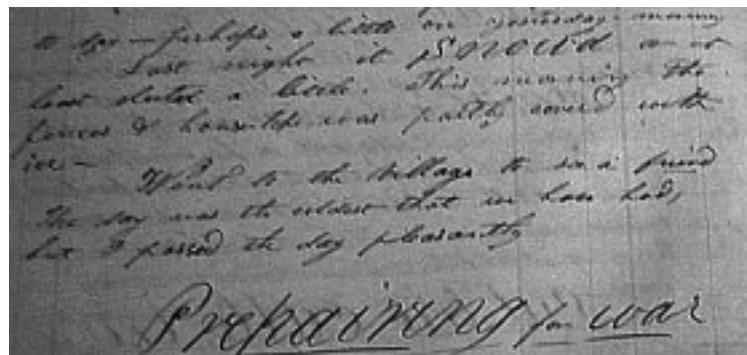 to day – perhaps a little on yesterday morning
Last night it Snowed or at
least sleeted a little. This morning the
fences & house tops was partly coverd with
ice –
Went to the village to see a friend
The day was the coldest that we have had,
but I passed the day pleasantly
Prepairing for war